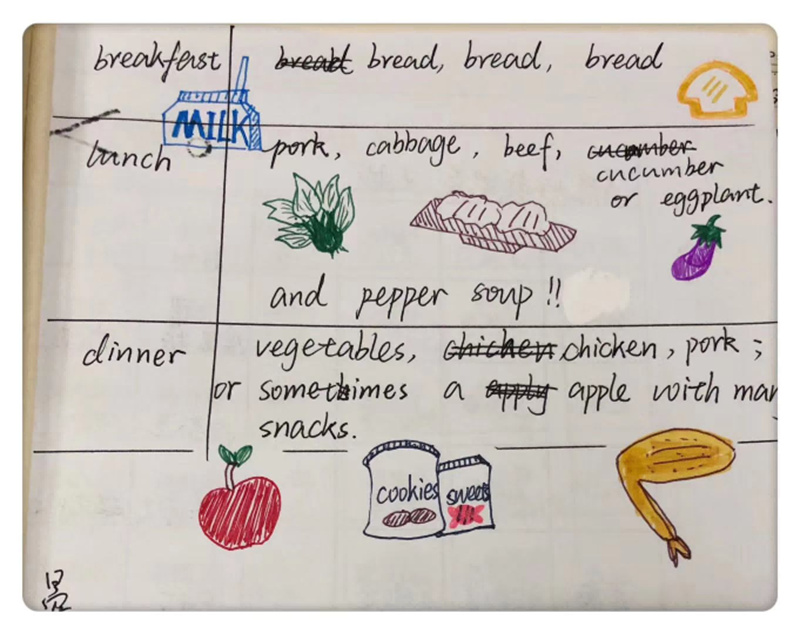 breakfast bread bread, bread, bread
MILK
lunch pork, cabbage, beef, cucumber
cucumber
or eggplant.
and pepper soup !!
dinner vegetables, chicken chicken, pork;
or sometimes a apply apple with man
snacks.
cookies sweets